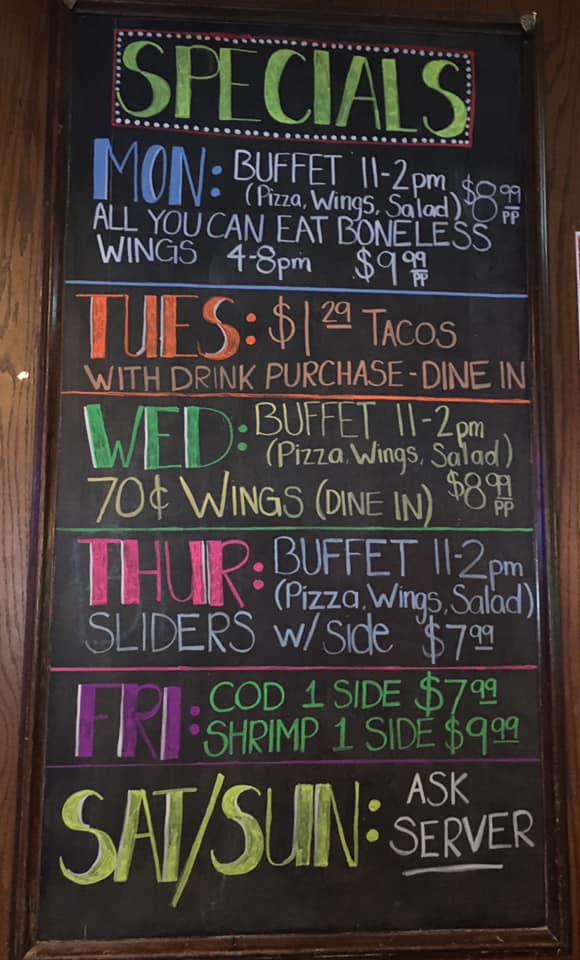 SPECIALS
MON: BUFFET 11-2pm
(Pizza, Wings, Salad) $8.99 PP
ALL YOU CAN EAT BONELESS
WINGS 4-8pm $9.99 PP
TUES: $1.29 TACOS
WITH DRINK PURCHASE - DINE IN
WED: BUFFET 11-2pm
(Pizza, Wings, Salad)
70¢ WINGS (DINE IN) $8.99 PP
THUR: BUFFET 11-2pm
(Pizza, Wings, Salad)
SLIDERS w/ Side $7.99
FRI: COD 1 SIDE $7.99
SHRIMP 1 SIDE $9.99
SAT/SUN: ASK
SERVER